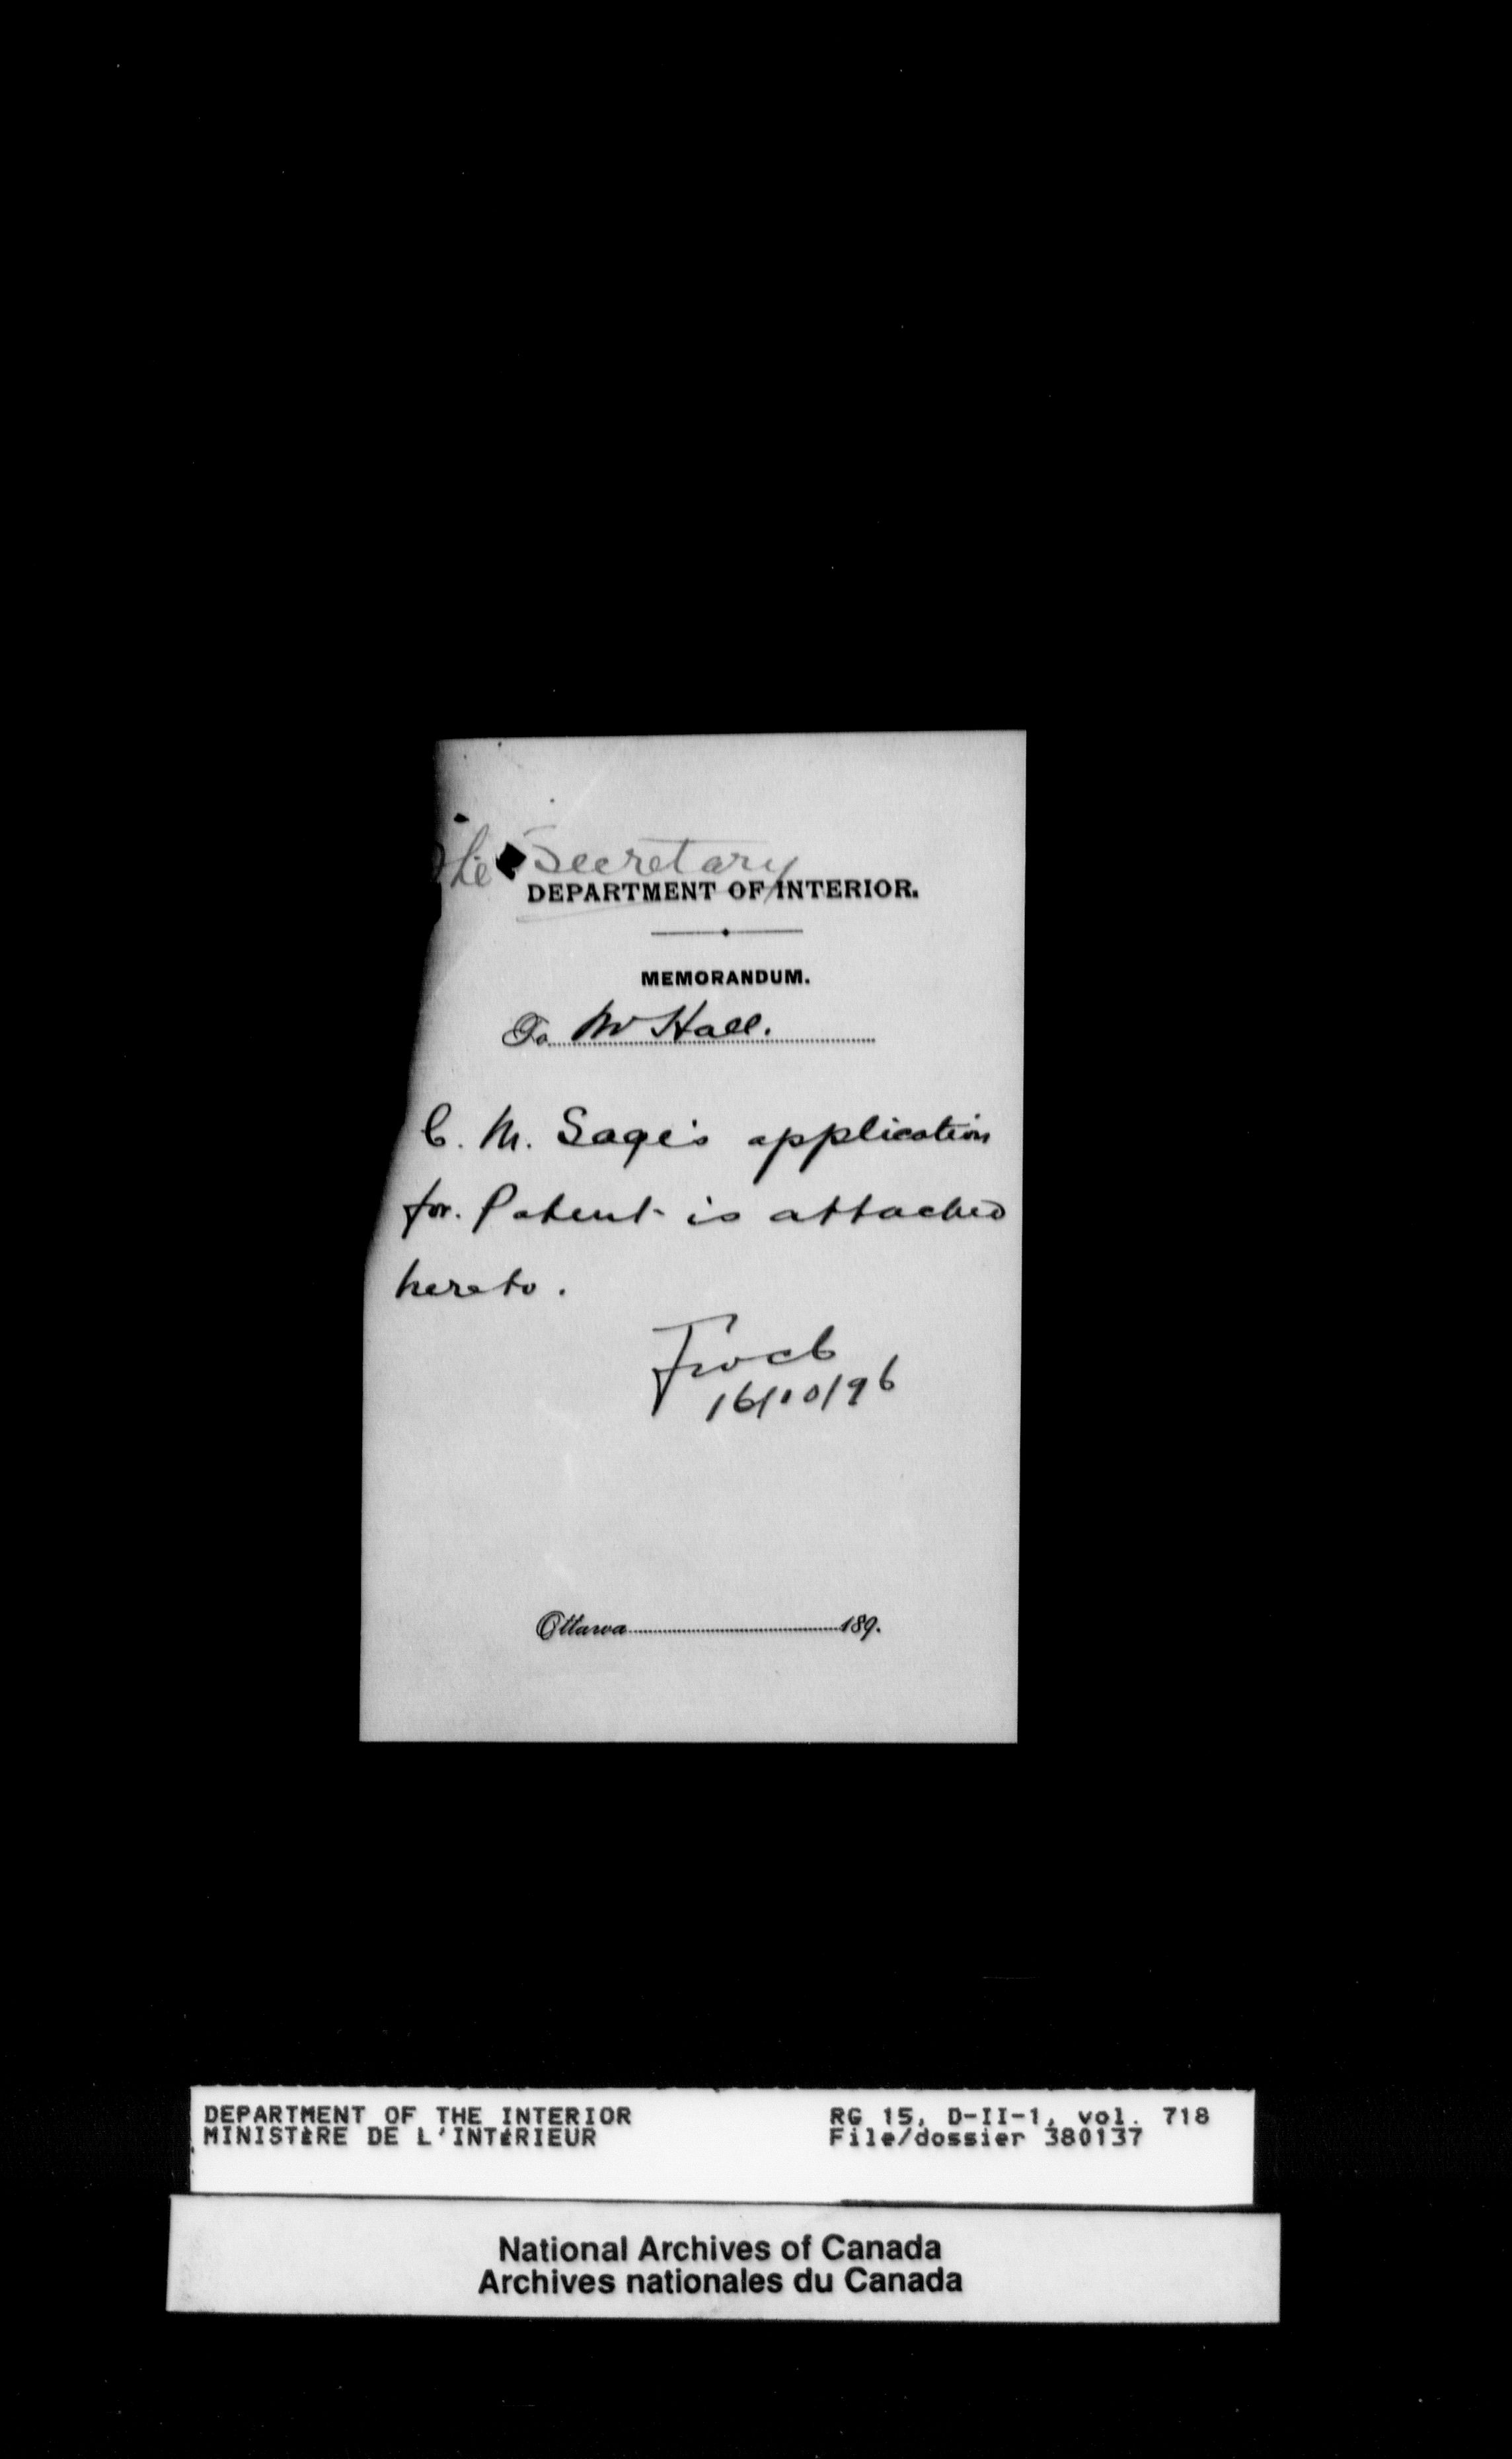 The Secretary
DEPARTMENT OF INTERIOR.
MEMORANDUM.
To Mr Hall.
C. M. Sage's application
for. Patent is attached
hereto.
16/10/96
Ottawa 189.
DEPARTMENT OF THE INTERIOR RG 15, D-II-1, vol. 718
MINISTÈRE DE L'INTÉRIEUR File/dossier 380137
National Archives of Canada
Archives nationales du Canada